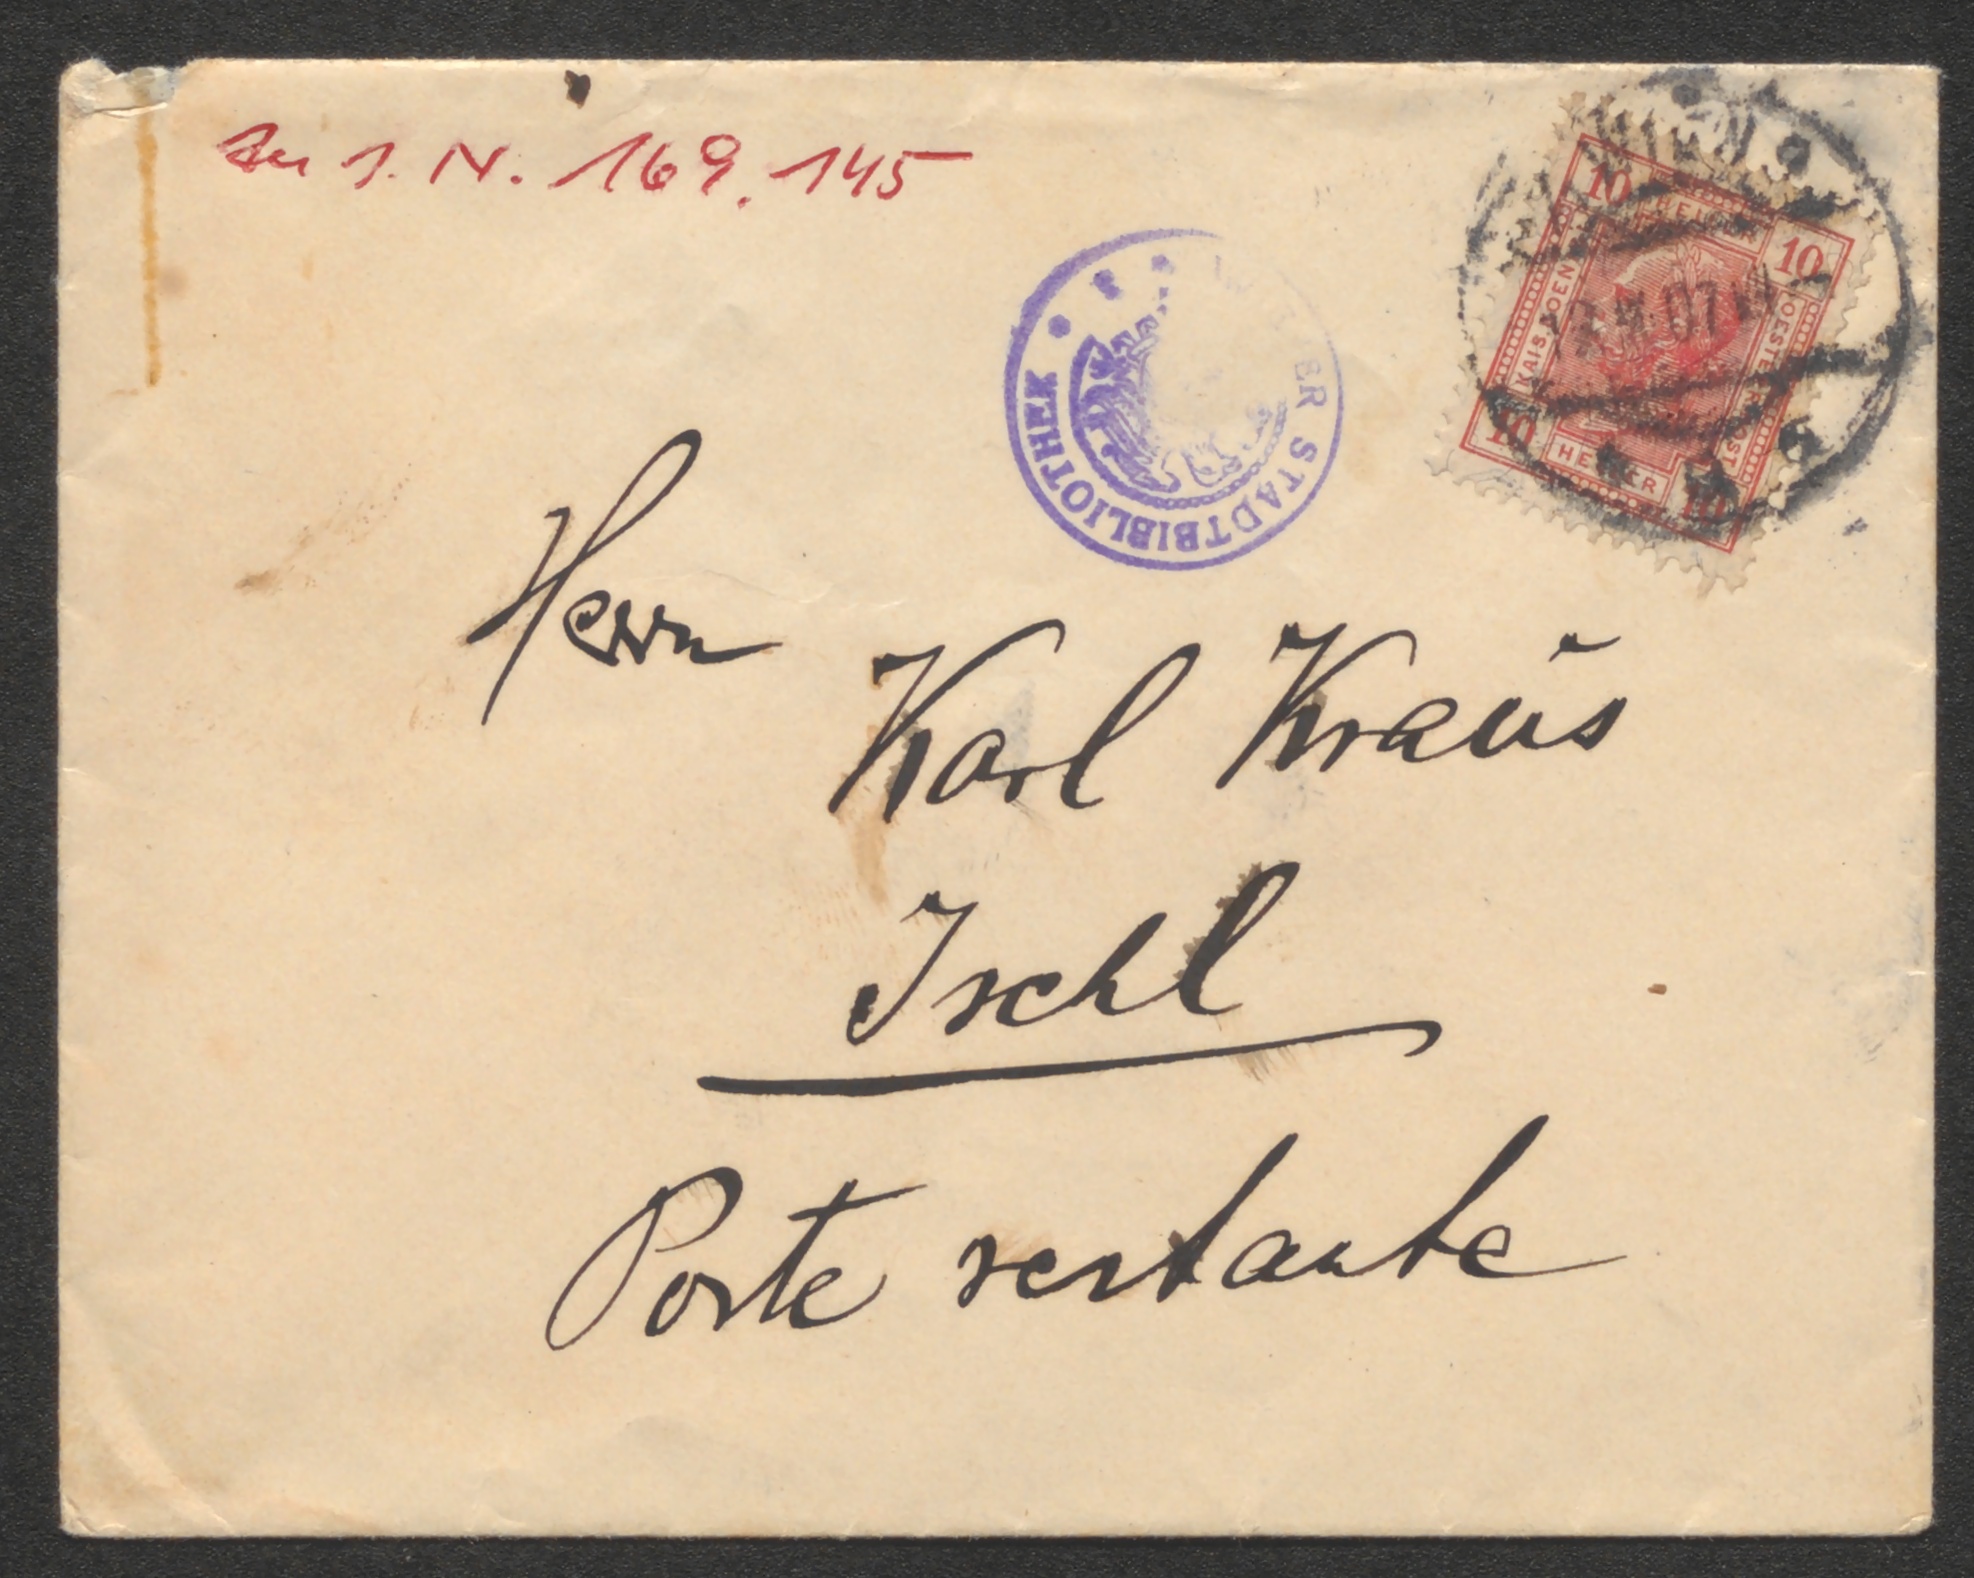 Zu I. N. 169.145
WIENER STADTBIBLIOTHEK
10 HELLER 10
KAIS. KOEN. OESTERR. POST
07
10 HELLER 10
Herrn
Karl Kraus
Ischl
Poste restante